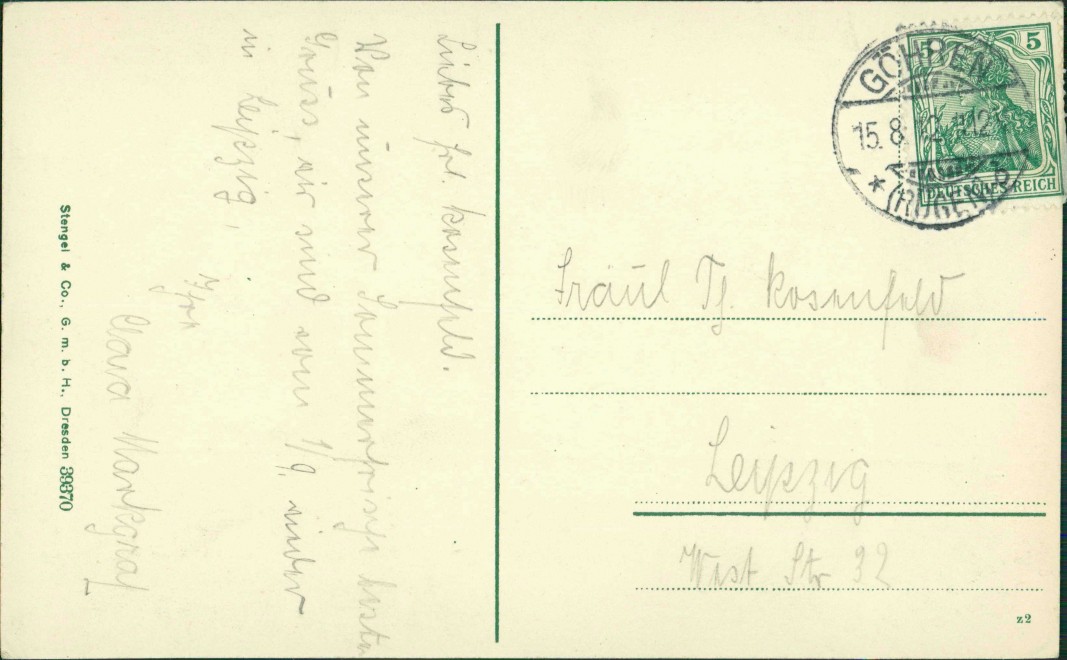 Liebes Frl. Rosenfeld.
Von unserer Sommerfrische beste
Grüsse, wir sind vom 1/9. wieder
in Leipzig,
Ihre
Clara Markgraf
Stengel & Co., G. m. b. H., Dresden 39870
GÖHREN
15.8.12
* (RÜGEN)
5
DEUTSCHES REICH
Fräul Th. Rosenfeld
Leipzig
West Str 32
z2